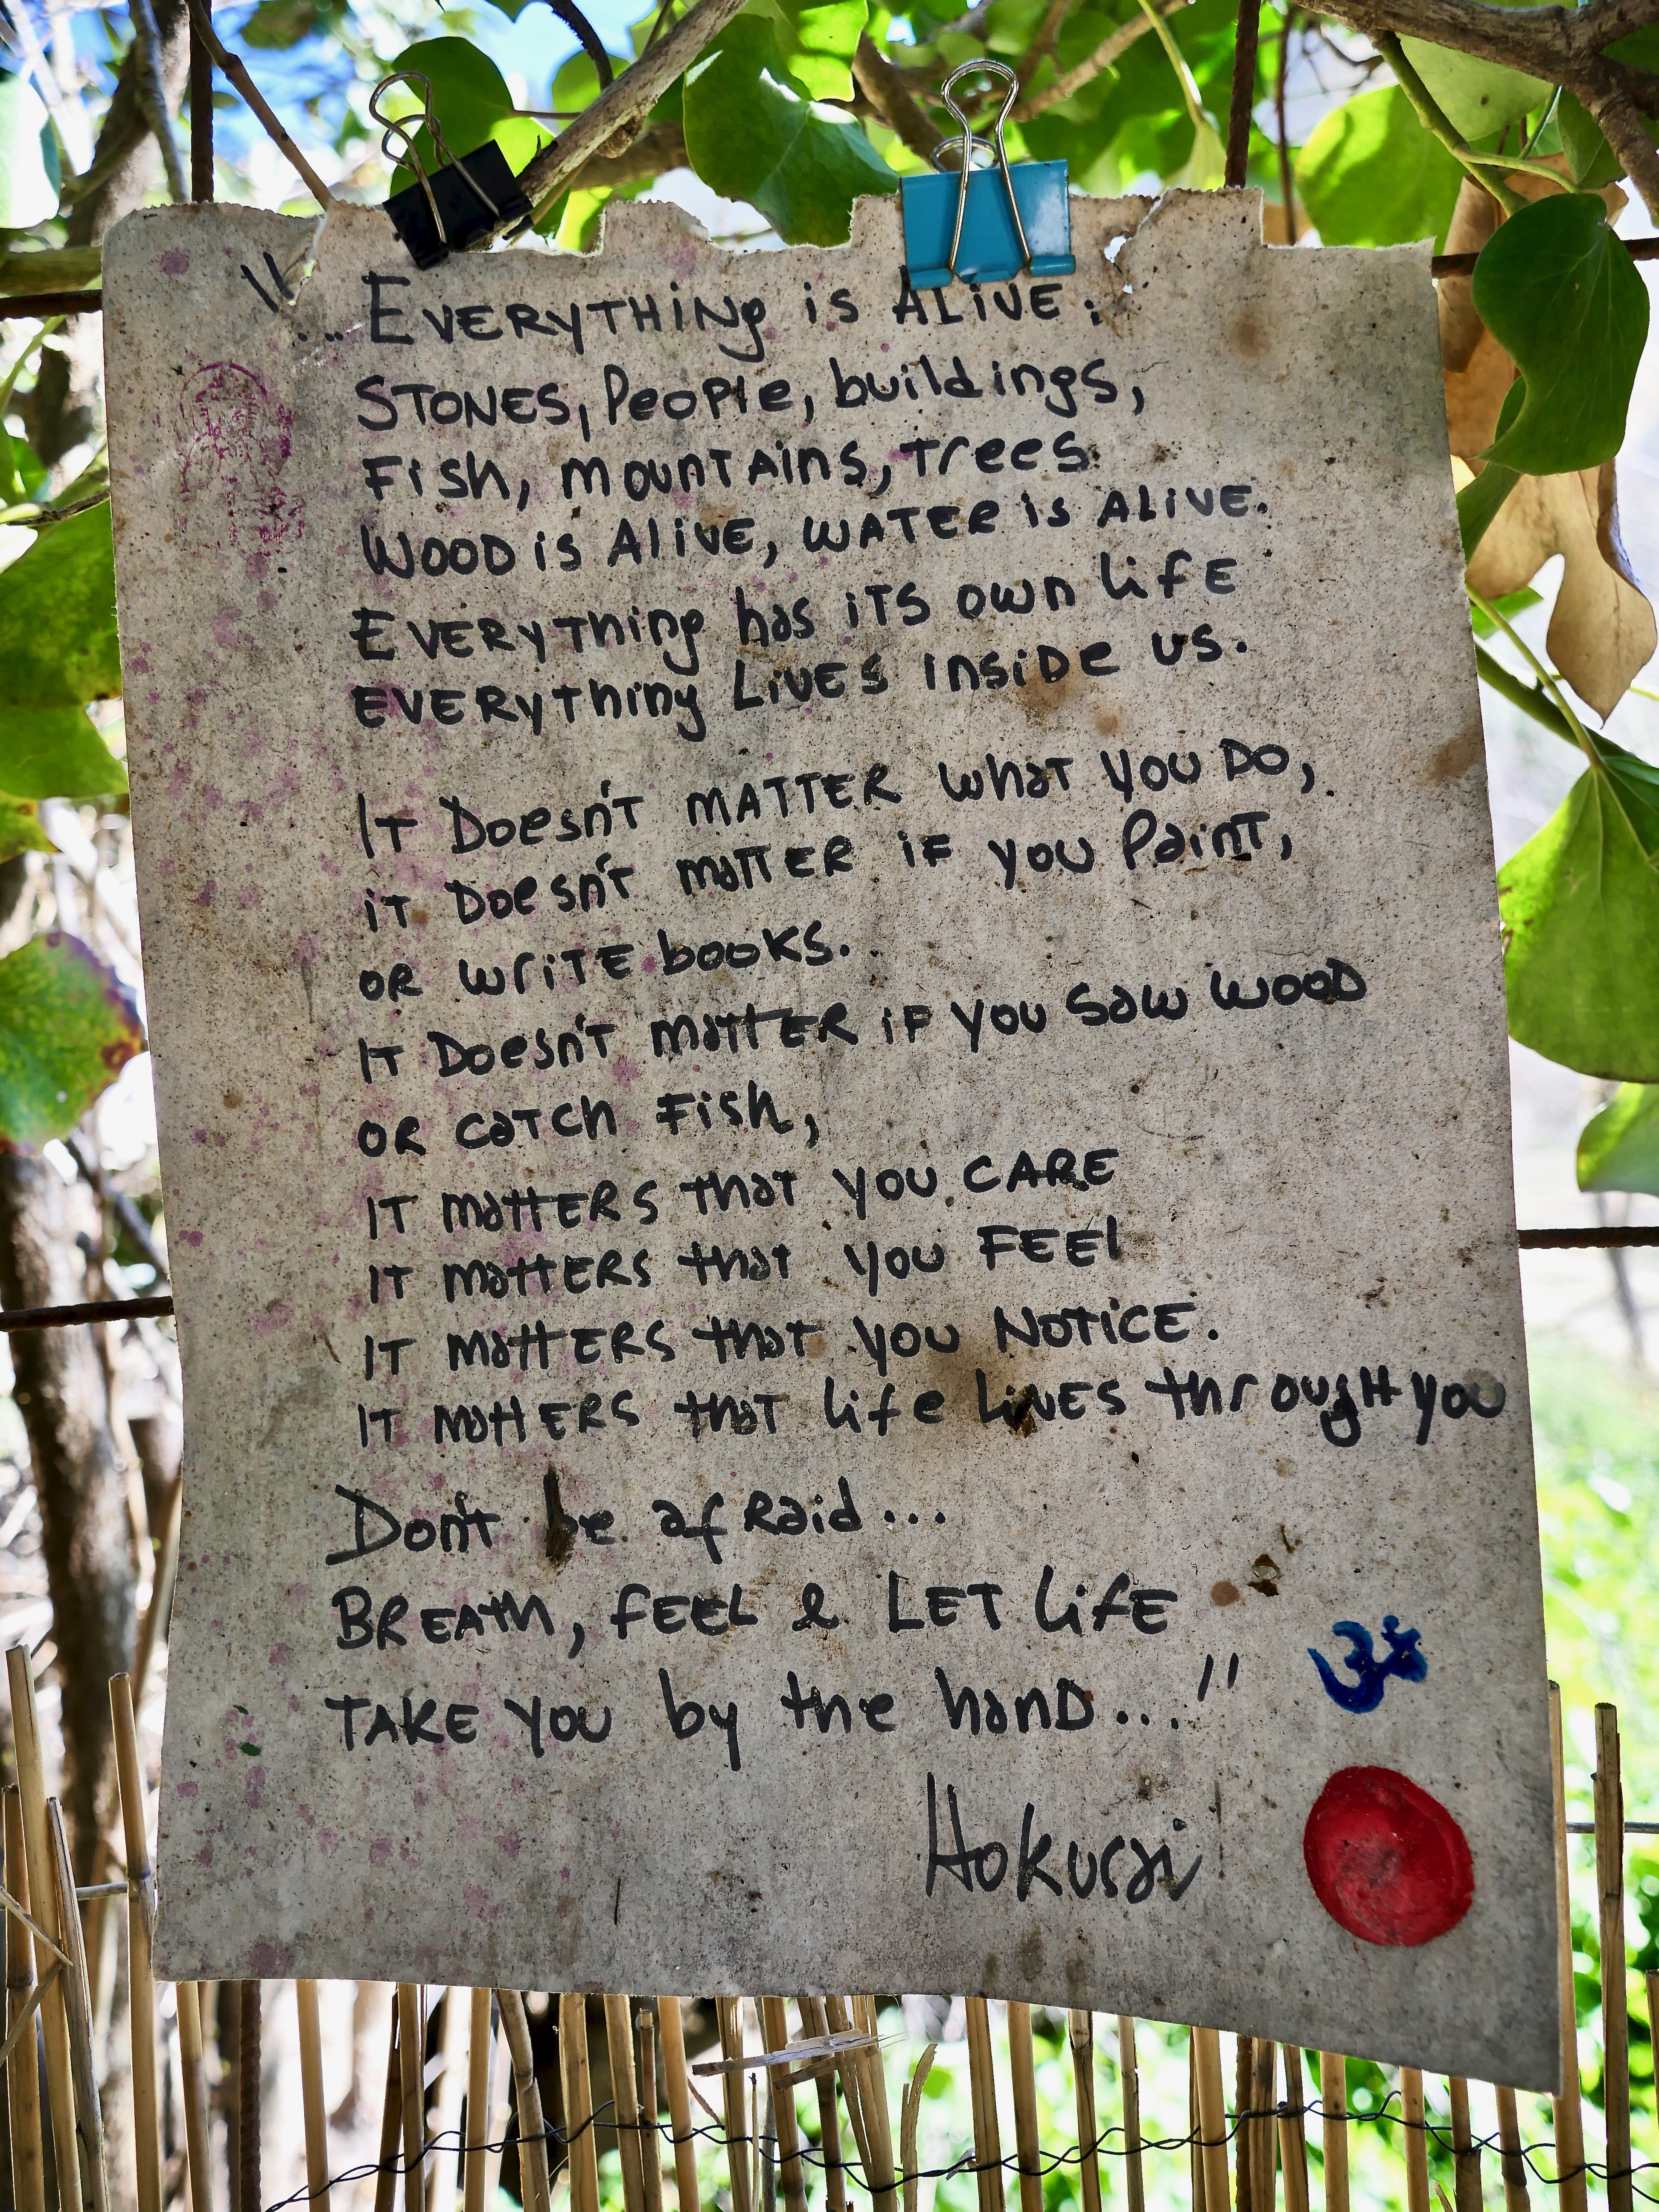 "...EVERyTHiNg is ALiVE:
STONES, PeoPle, buildings,
Fish, mountAins, trees
WOOD is AliVE, WATER is ALiVE.
EVERyThing has iTS own lifE
EVERyThing LiVES insiDe us.
IT Doesn't MATTER what you DO,
iT Doesn't mattER iF you Paint,
OR writE books.
IT Doesn't mattER iF you Saw WOOD
OR caTch Fish,
IT mattERS that you CARE
IT mattERS that you FEEl
IT mattERS that you NOTiCE.
IT mattERS that life liVES throughH you
Don't be afRaid...
BREATh, fEEL & LET lifE
TAKE you by the hanD..."
ॐ
Hokusai